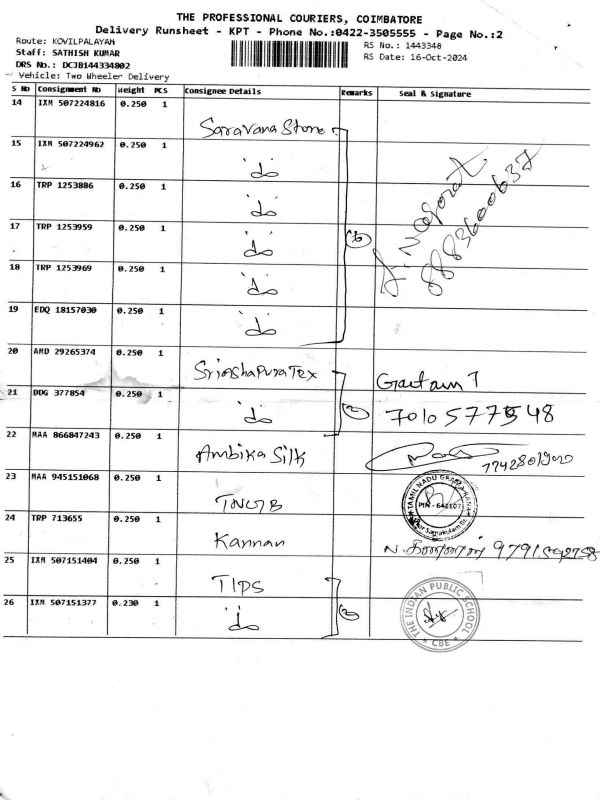 THE PROFESSIONAL COURIERS, COIMBATORE
Delivery Runsheet - KPT - Phone No.:0422-3505555 - Page No.:2
Route: KOVILPALAYAM
RS No.: 1443348
Staff: SATHISH KUMAR
RS Date: 16-Oct-2024
DRS No.: DCJB144334802
Vehicle: Two Wheeler Delivery
S No Consignment No Weight PCS Consignee Details Remarks Seal & Signature
14 IXM 507224816 0.250 1 Saravana Store
15 IXM 507224962 0.250 1 do
16 TRP 1253886 0.250 1 do
17 TRP 1253959 0.250 1 do
18 TRP 1253969 0.250 1 do
19 EDQ 18157030 0.250 1 do
6
20 AMD 29265374 0.250 1 Gautam T
21 DDG 377854 0.250 1 do 2
22 MAA 866847243 0.250 1 Ambika Silk
23 MAA 945151068 0.250 1 TNGB TAMIL NADU GRAMA BANK PIN - 641107
24 TRP 713655 0.250 1 Kannan
25 IXM 507151404 0.250 1 TIPS
26 IXM 507151377 0.230 1 do 2 THE INDIAN PUBLIC SCHOOL CBE